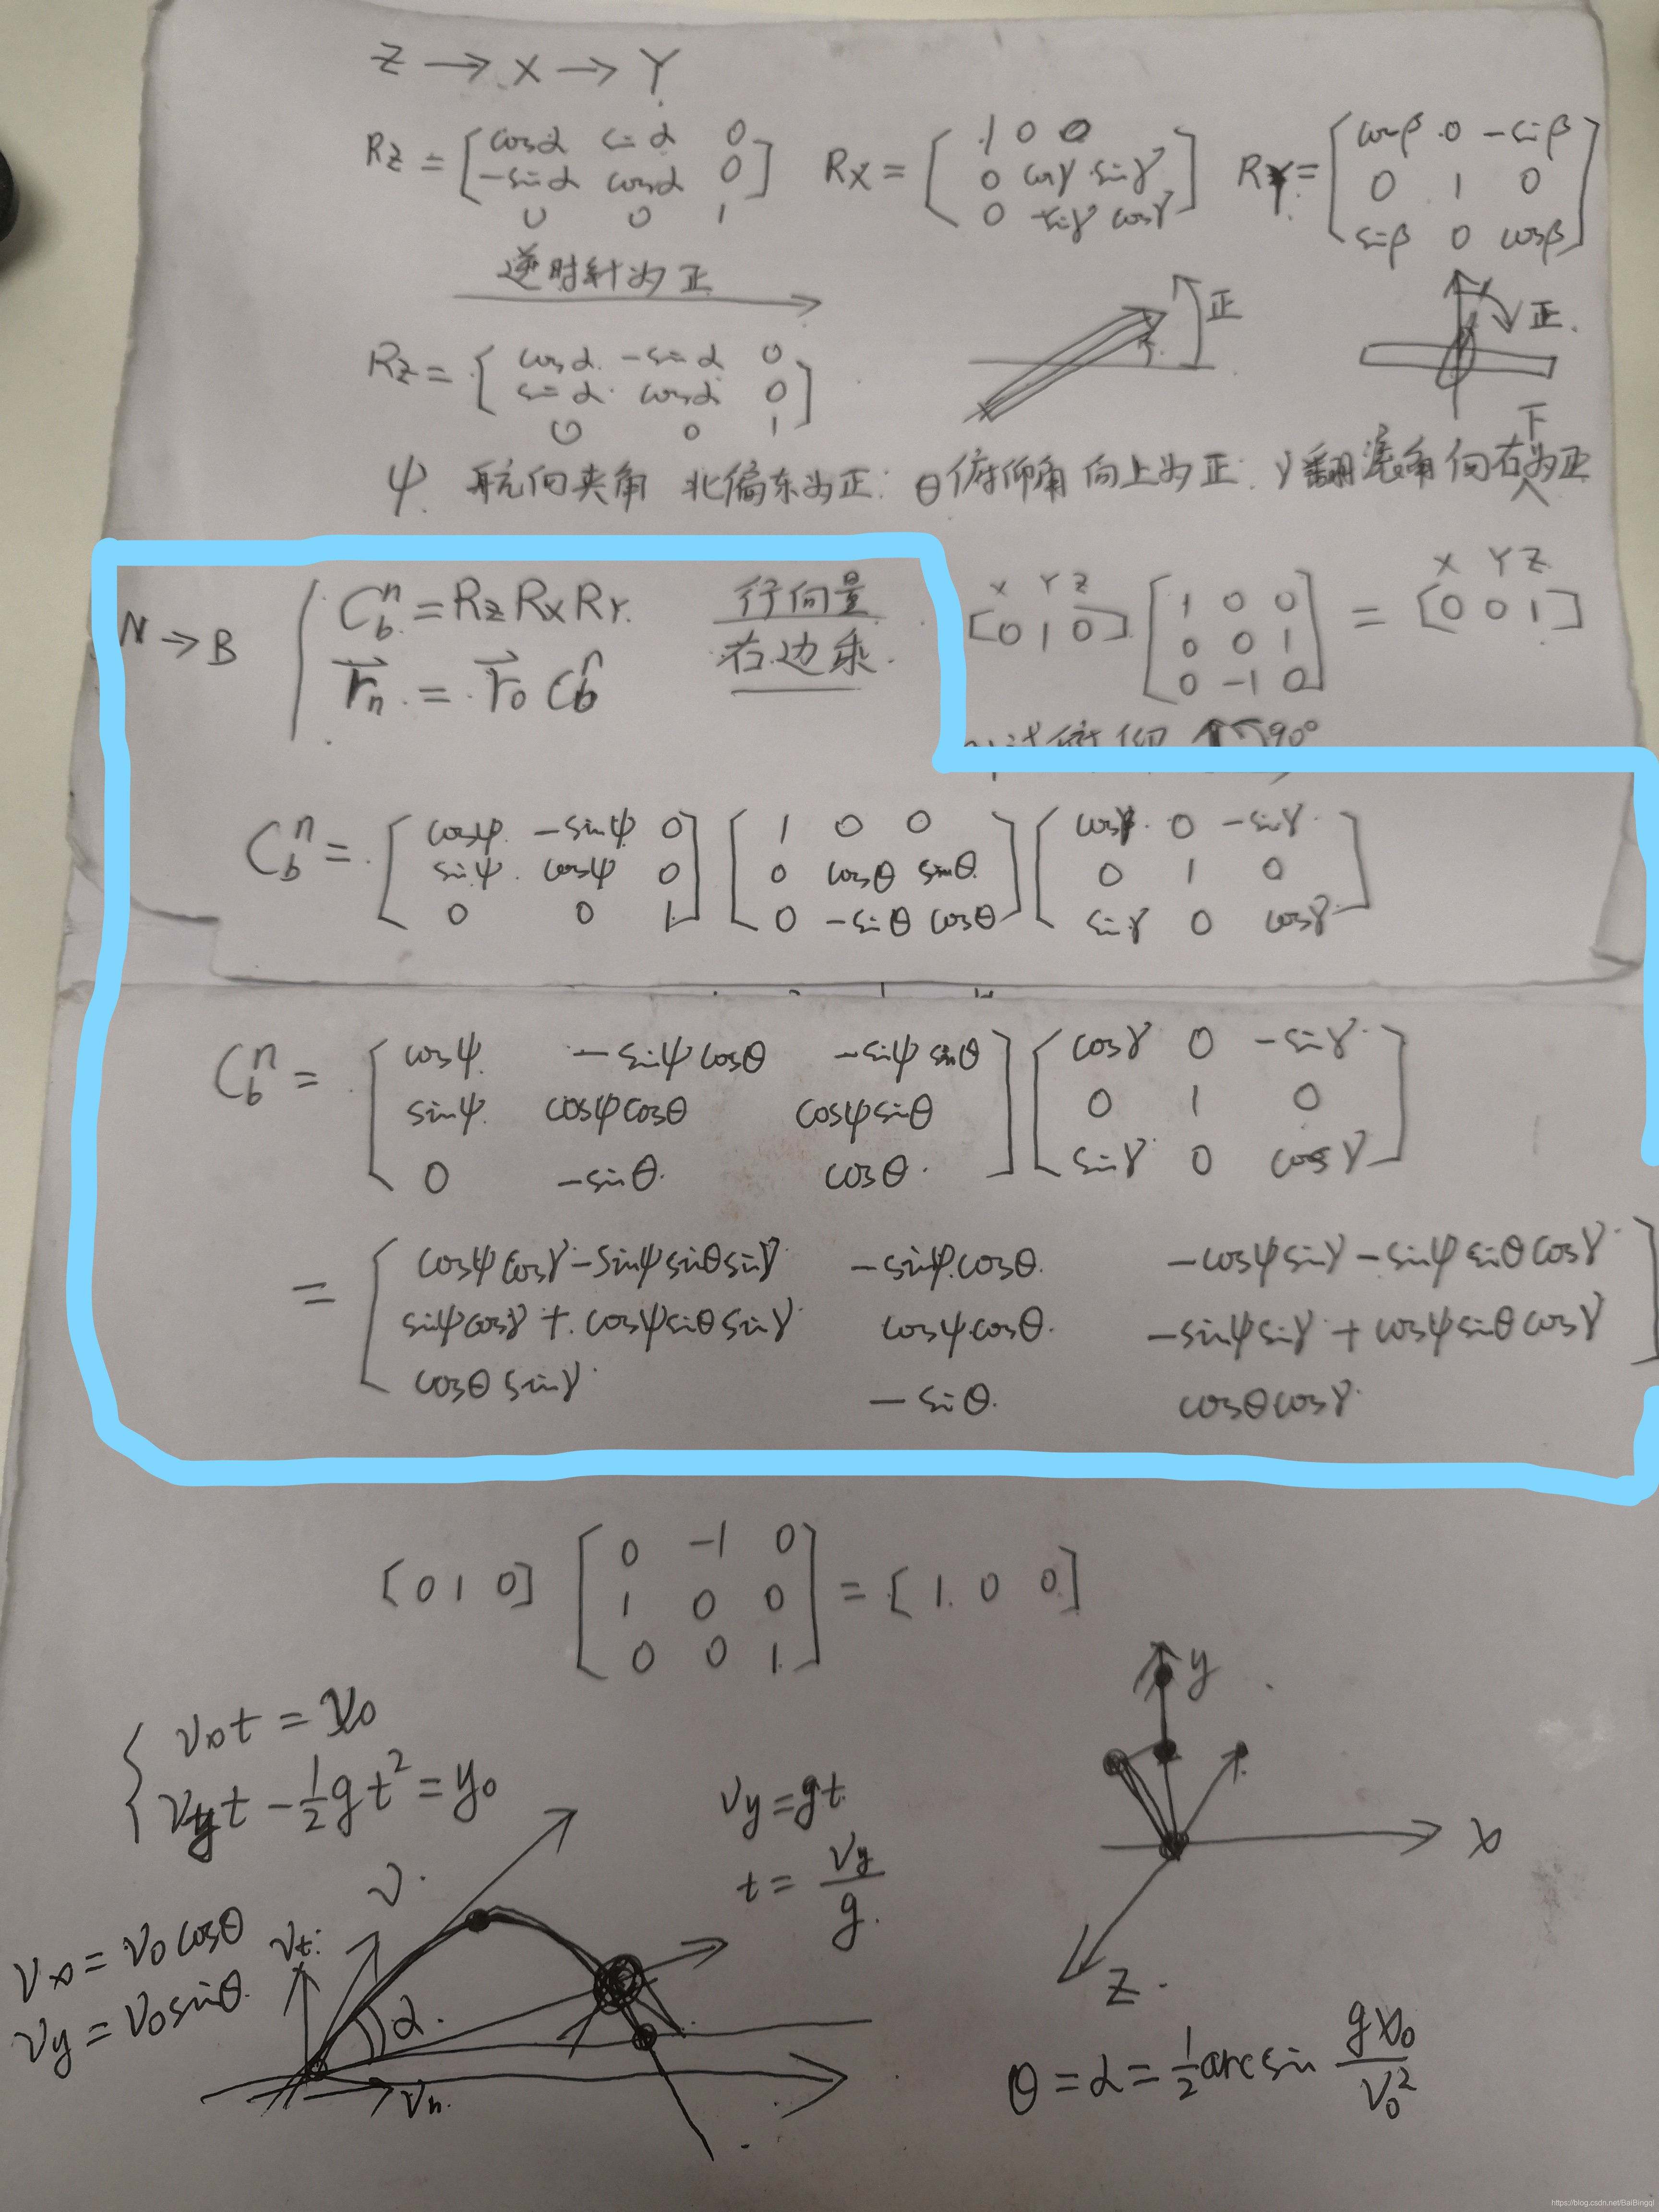 Z → X → Y
Rz = [cosα sinα 0
-sinα cosα 0
0 0 1]
Rx = [1 0 0
0 cosγ sinγ
0 -sinγ cosγ]
RY = [cosβ 0 -sinβ
0 1 0
sinβ 0 cosβ]
逆时针为正
正
正.
Rz = [cosα -sinα 0
sinα cosα 0
0 0 1]
ψ 航向夹角 北偏东为正; θ俯仰角 向上为正; γ翻滚角 向右下为正
N → B
C_b^n = Rz Rx RY.
r_n = r_0 C_b^n
行向量
右边乘.
X Y Z
[0 1 0] [1 0 0
0 0 1
0 -1 0] = [0 0 1]
X Y Z
俯仰 90°
C_b^n = [cosψ -sinψ 0
sinψ cosψ 0
0 0 1] [1 0 0
0 cosθ sinθ
0 -sinθ cosθ] [cosγ 0 -sinγ
0 1 0
sinγ 0 cosγ]
C_b^n = [cosψ -sinψcosθ -sinψsinθ
sinψ cosψcosθ cosψsinθ
0 -sinθ cosθ] [cosγ 0 -sinγ
0 1 0
sinγ 0 cosγ]
= [cosψcosγ-sinψsinθsinγ -sinψcosθ -cosψsinγ-sinψsinθcosγ
sinψcosγ+cosψsinθsinγ cosψcosθ -sinψsinγ+cosψsinθcosγ
cosθsinγ -sinθ cosθcosγ]
[0 1 0] [0 -1 0
1 0 0
0 0 1] = [1 0 0]
{ Vxt = x0
Vyt - 1/2 gt² = y0
Vy = gt
t = Vy/g
Vx = V0cosθ
Vy = V0sinθ
V
Vt
α
Vn
y
x
Z
θ = α = 1/2 arcsin gx0/V0²
https://blog.csdn.net/BaiBingqi